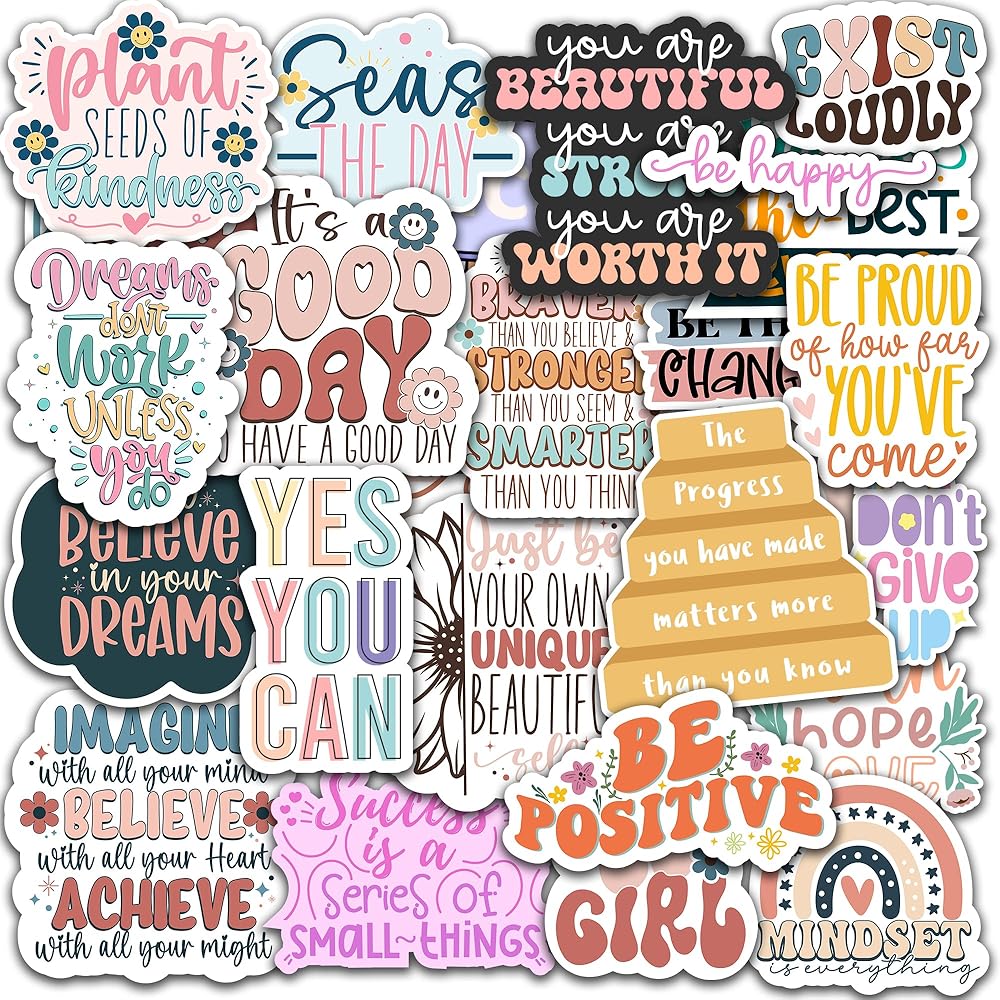 Plant
SEEDS OF
kindness
Seas
THE DAY
you are
BEAUTIFUL
you are
you are
WORTH IT
EXIST
LOUDLY
be happy
BEST
Dreams
don't
Work
UNLESS
you
do
It's a
GOOD
DAY
HAVE A GOOD DAY
BRAVER
THAN YOU BELIEVE &
STRONGER
THAN YOU SEEM &
SMARTER
THAN YOU THINK
BE
CHANG
BE PROUD
of how far
YOU'VE
come
BELIEVE
in your
DREAMS
YES
YOU
CAN
Just be
YOUR OWN
UNIQUE
BEAUTIF
The
Progress
you have made
matters more
than you know
DON'T
GIVE
UP
hope
IMAGINE
with all your mind
BELIEVE
with all your Heart
ACHIEVE
with all your might
Success
is a
Series of
SMALL~THINGS
BE
POSITIVE
GIRL
MINDSET
is everything